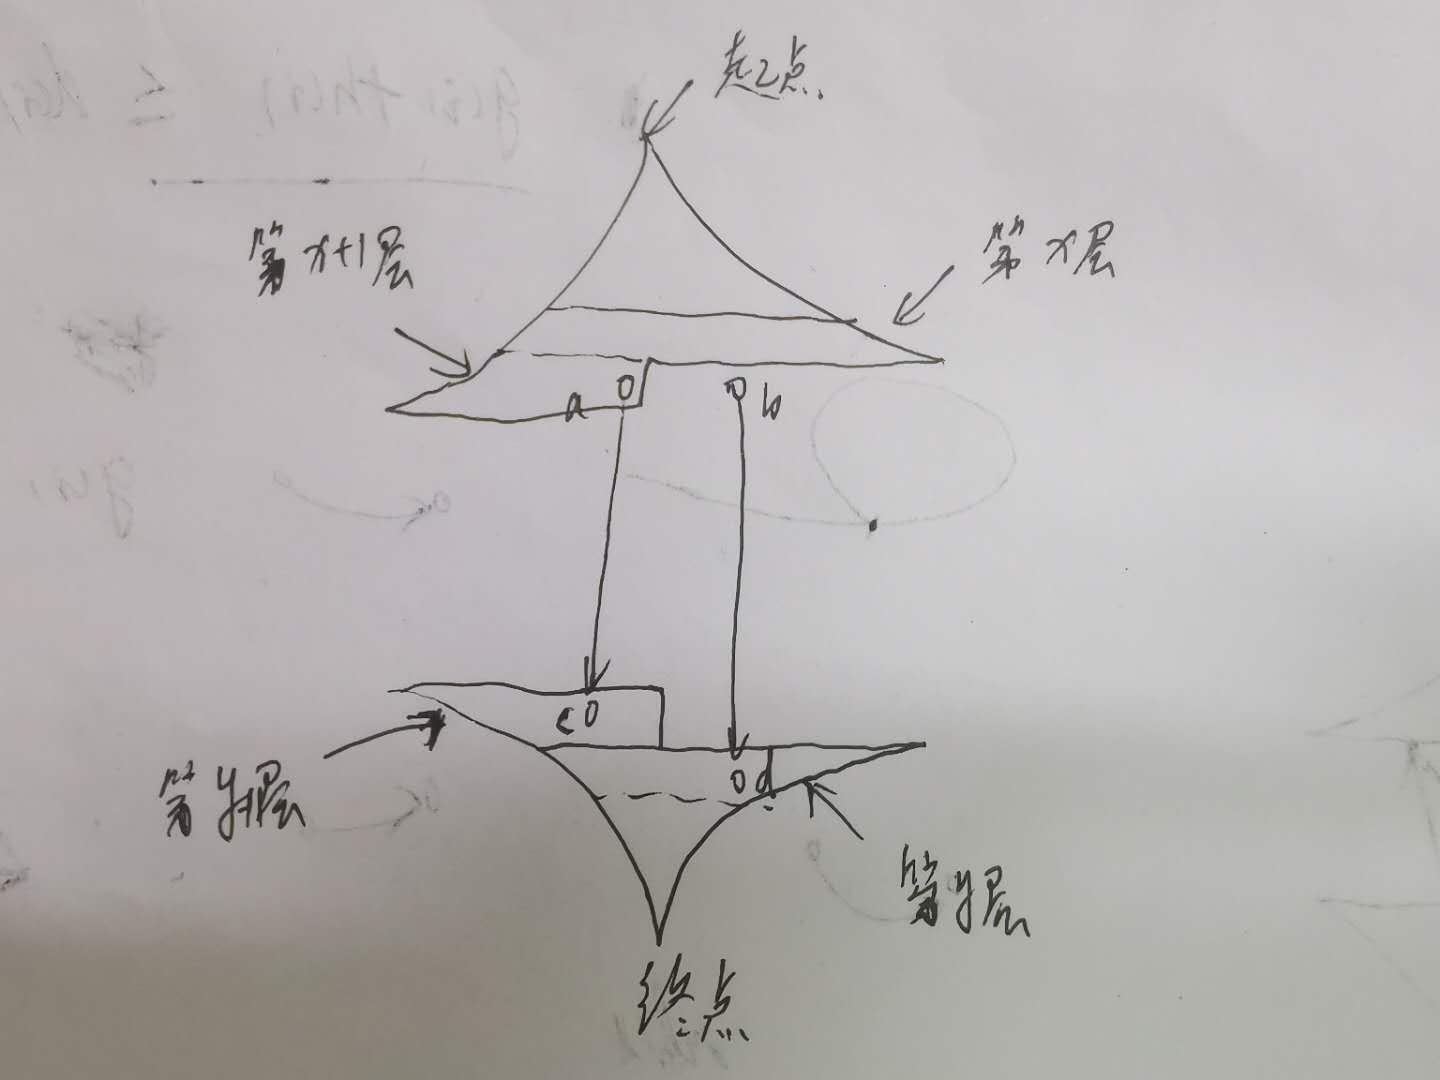 起点
第x+1层
第x层
a
b
c
d
第y+1层
第y层
终点